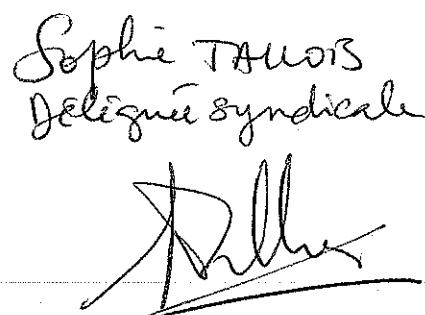 Sophie TALLOIS
Déléguée syndicale